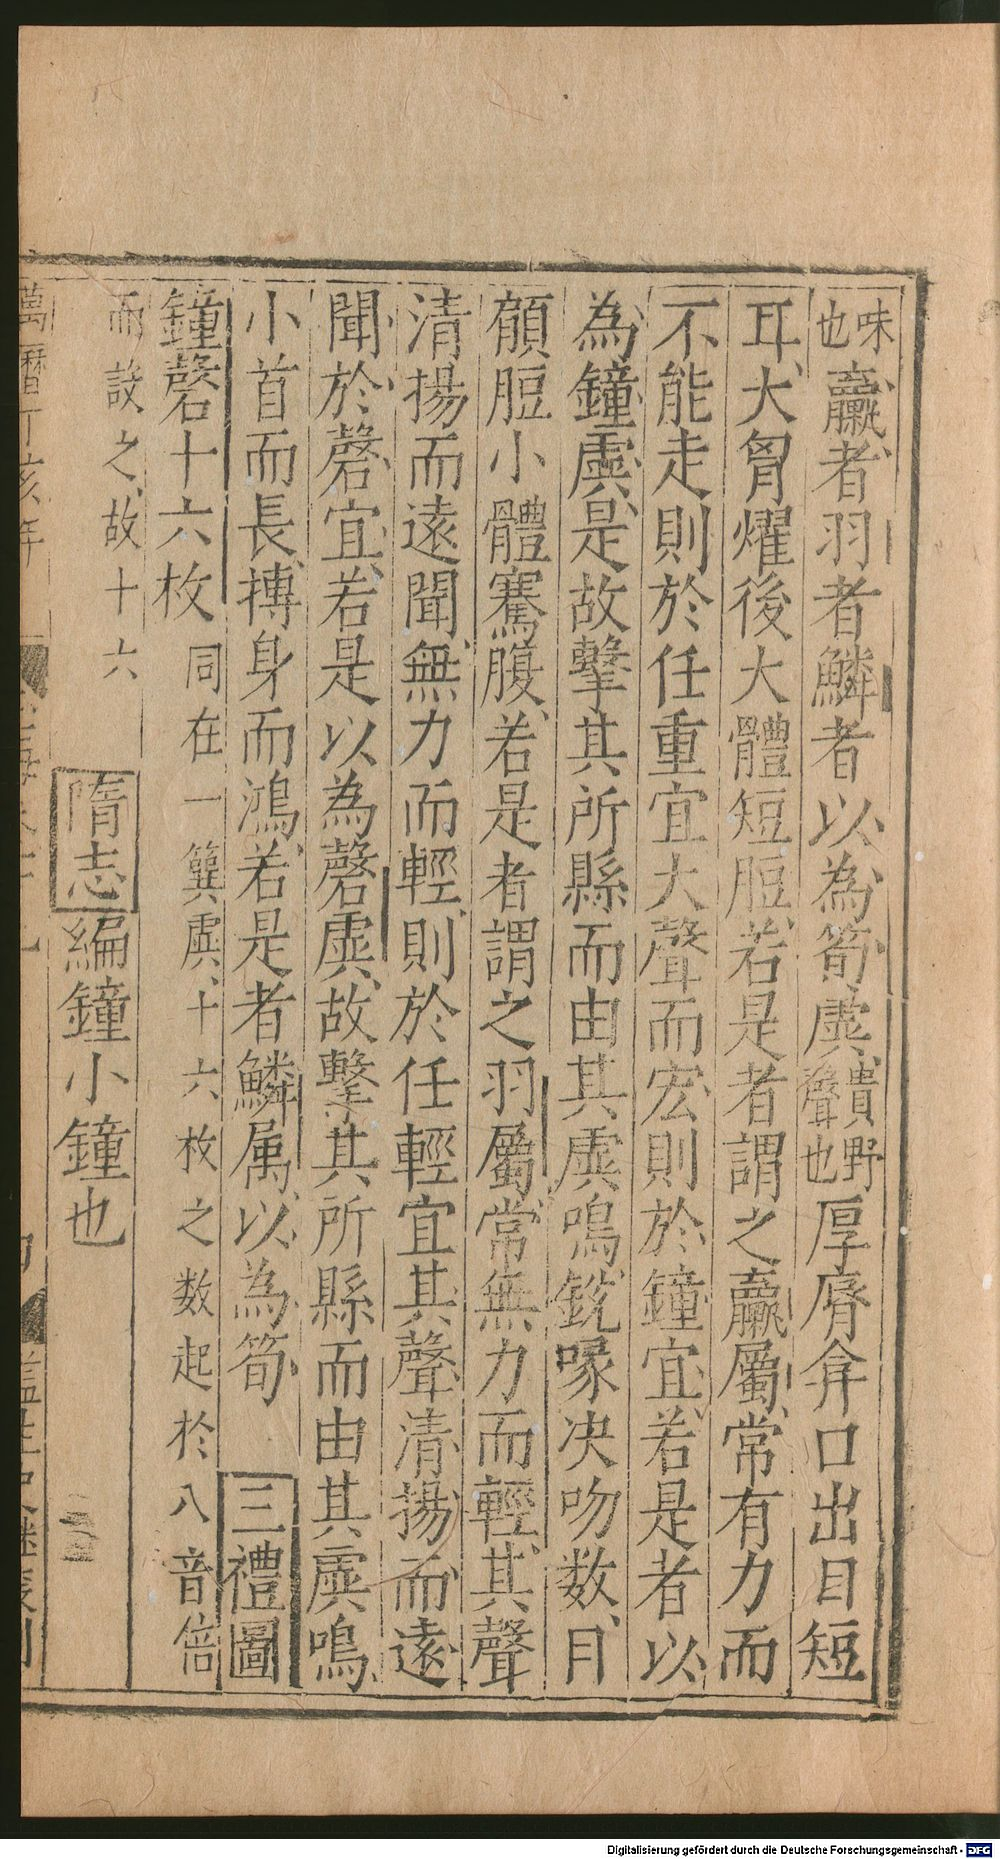 味也羸者羽者鱗者以為筍虡貴野聲也厚脣弇口出目短
耳大胷燿後大體短脰若是者謂之羸屬常有力而
不能走則於任重宜大聲而宏則於鐘宜若是者以
為鐘虡是故擊其所縣而由其虡鳴銳喙决吻数目
顅脰小體騫腹若是者謂之羽屬常無力而輕其聲
清揚而遠聞無力而輕則於任輕宜其聲清揚而遠
聞於磬宜若是以為磬虡故擊其所縣而由其虡鳴
小首而長摶身而鴻若是者鱗属以為筍 三禮圖
鐘磬十六枚同在一簨虡十六枚之数起於八音倍
而設之故十六 隋志編鐘小鐘也
萬曆丁亥年
Digitalisierung gefördert durch die Deutsche Forschungsgemeinschaft - DFG